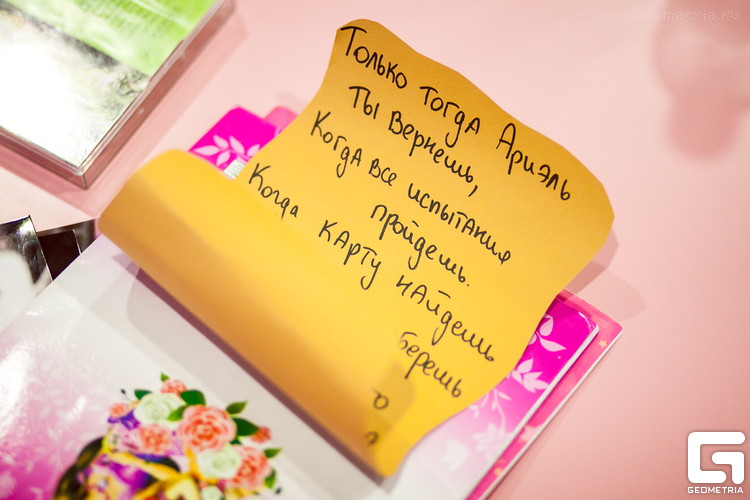 Только тогда Ариэль
ты вернешь,
Когда все испытания
пройдешь.
Когда карту найдешь
берешь
Geometria.ru
GEOMETRIA